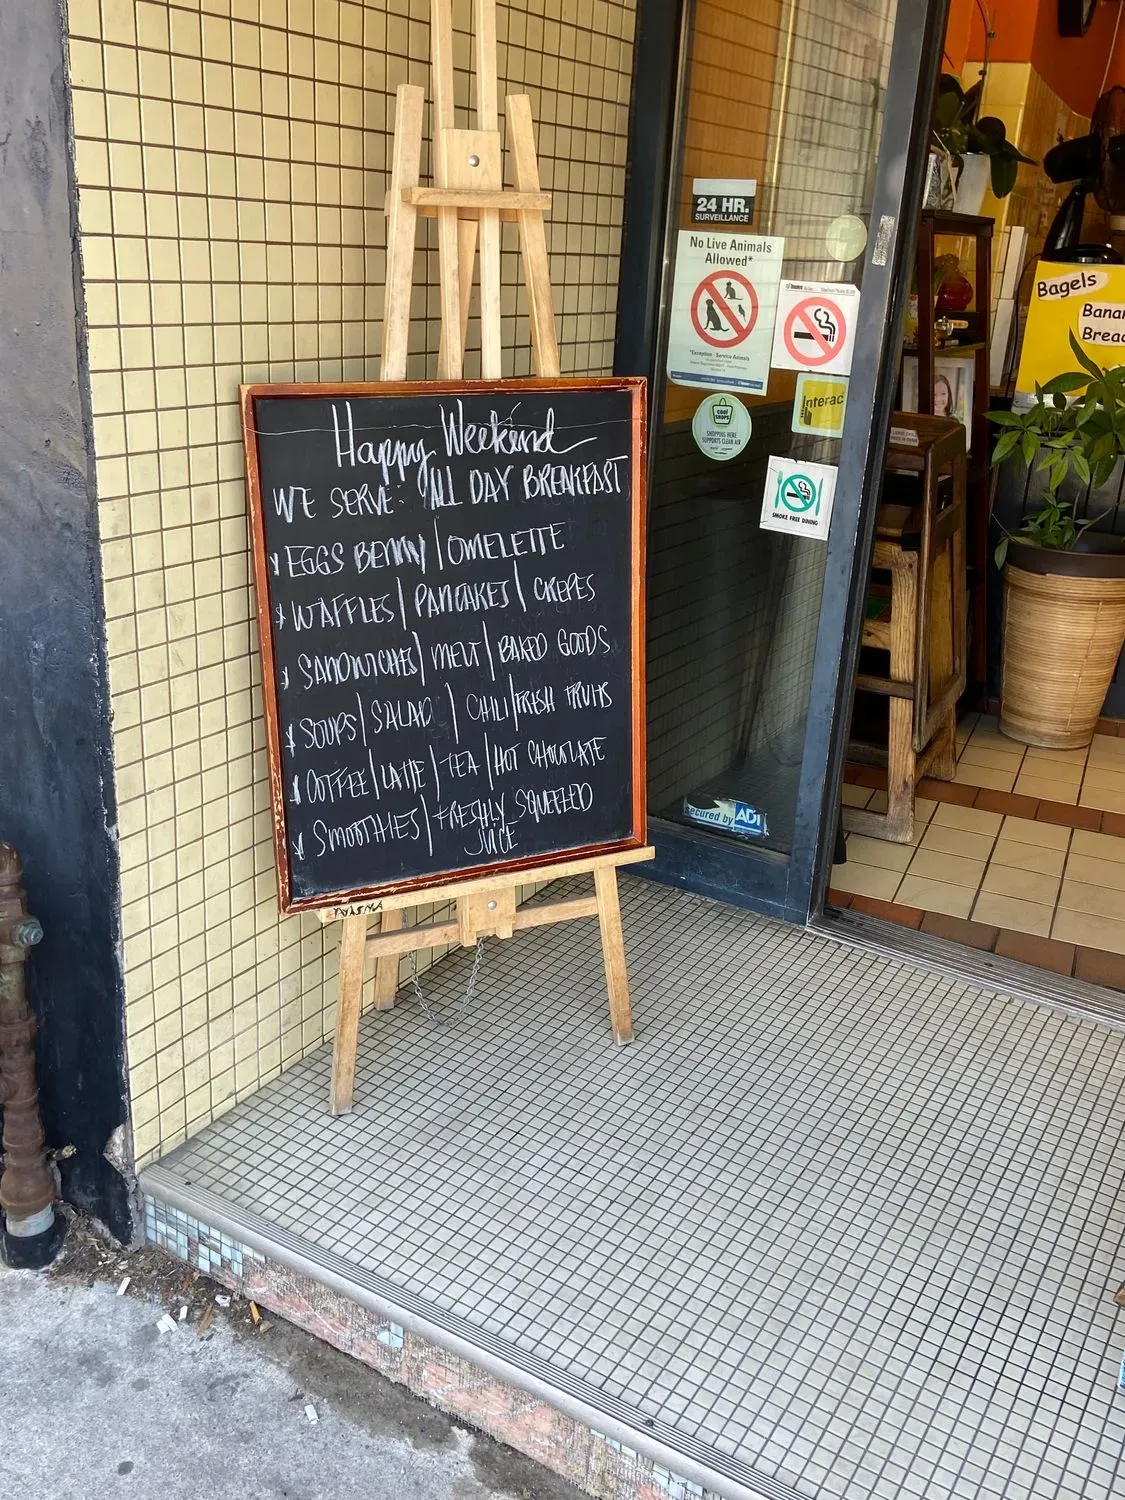 Happy Weekend
WE SERVE: ALL DAY BREAKFAST
* EGGS BENNY | OMELETTE
* WAFFLES | PANCAKES | CREPES
* SANDWICHES | MELT | BAKED GOODS
* SOUPS | SALAD | CHILI | FRESH FRUITS
* COFFEE | LATTE | TEA | HOT CHOCOLATE
* SMOOTHIES | FRESHLY SQUEEZED
JUICE
24 HR.
SURVEILLANCE
No Live Animals
Allowed*
*Exception - Service Animals
cool
shops
SHOPPING HERE
SUPPORTS CLEAN AIR
Interac
SMOKE FREE DINING
secured by ADT
Bagels
Banan
Bread